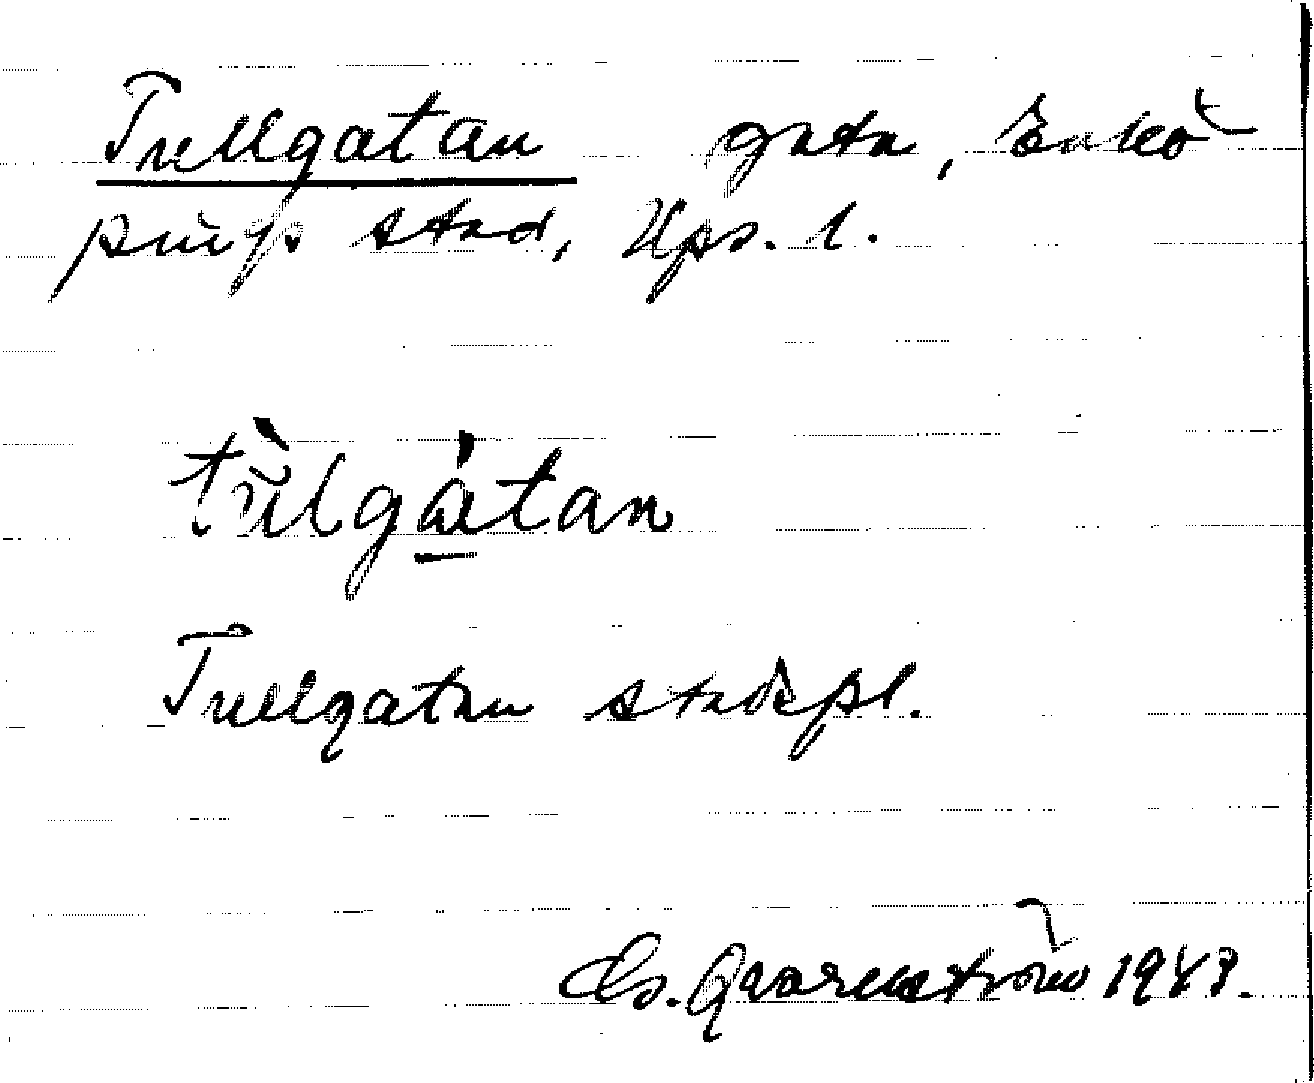 Tullgatan gata, Enkö
pings stad, Ups. l.
tùlgátan
Tullgatan stadspl.
Cs. Qvarnström 1943.